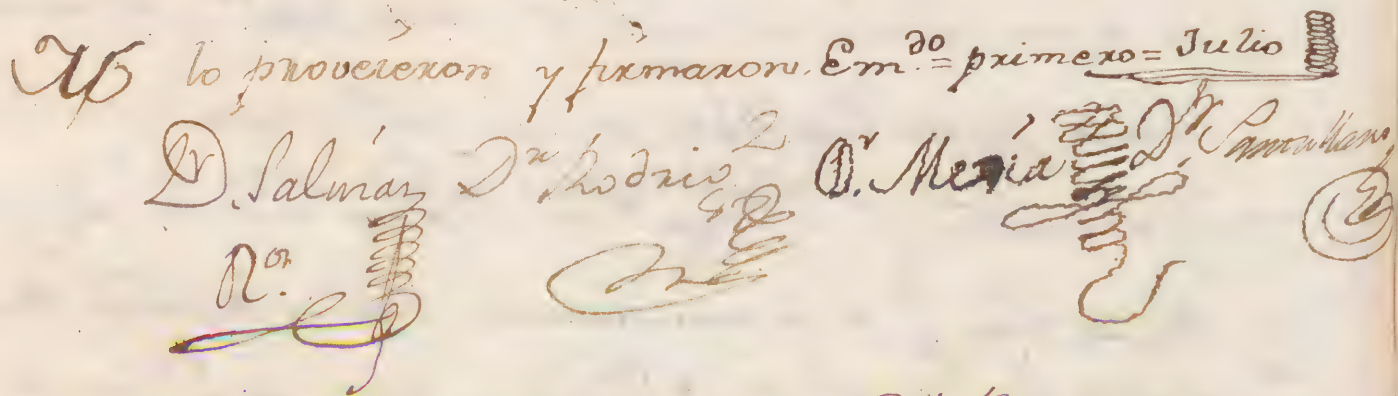 Assi lo proveieron y firmaron. Em.do = primero = Julio
Dr. Salináz Dr Rodrig.z Dr. Mexía Dr Santullan
R.or